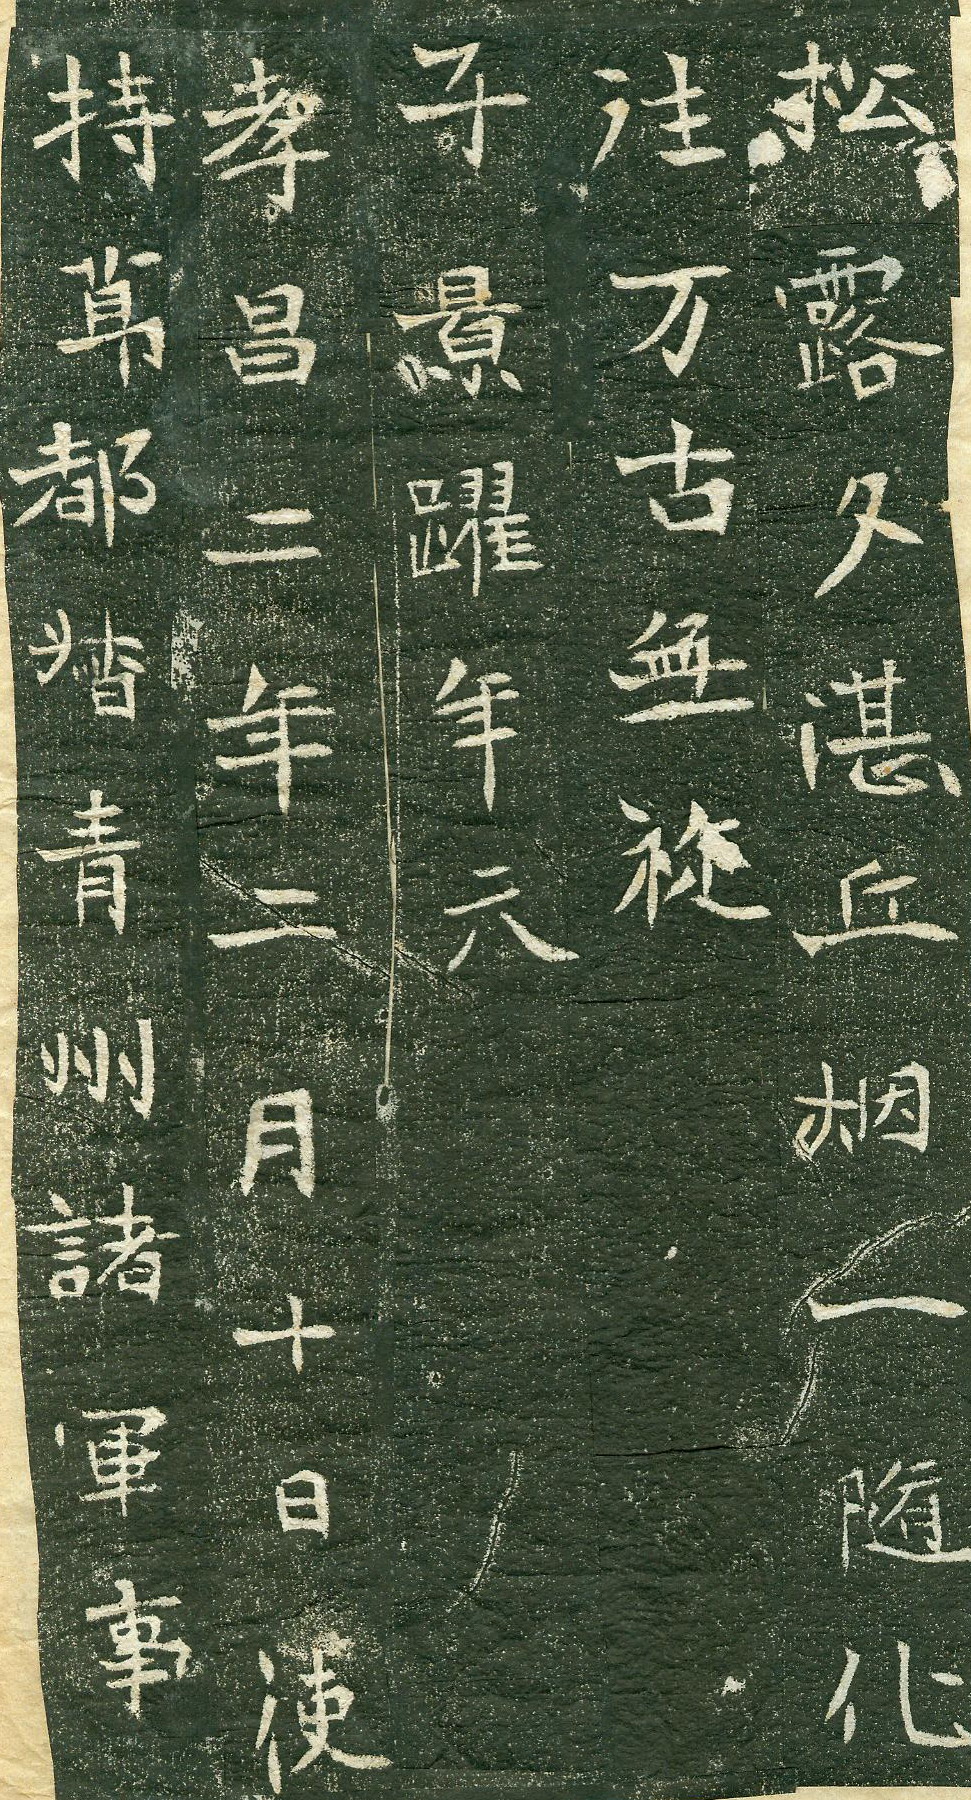 松露夕湛丘烟一随化
注万古無追
子景躍年六
孝昌二年二月十日使
持莭都督青州諸軍事